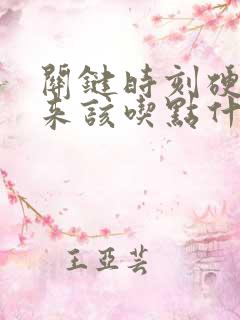 關鍵時刻硬
來該喫點什
王亞芸